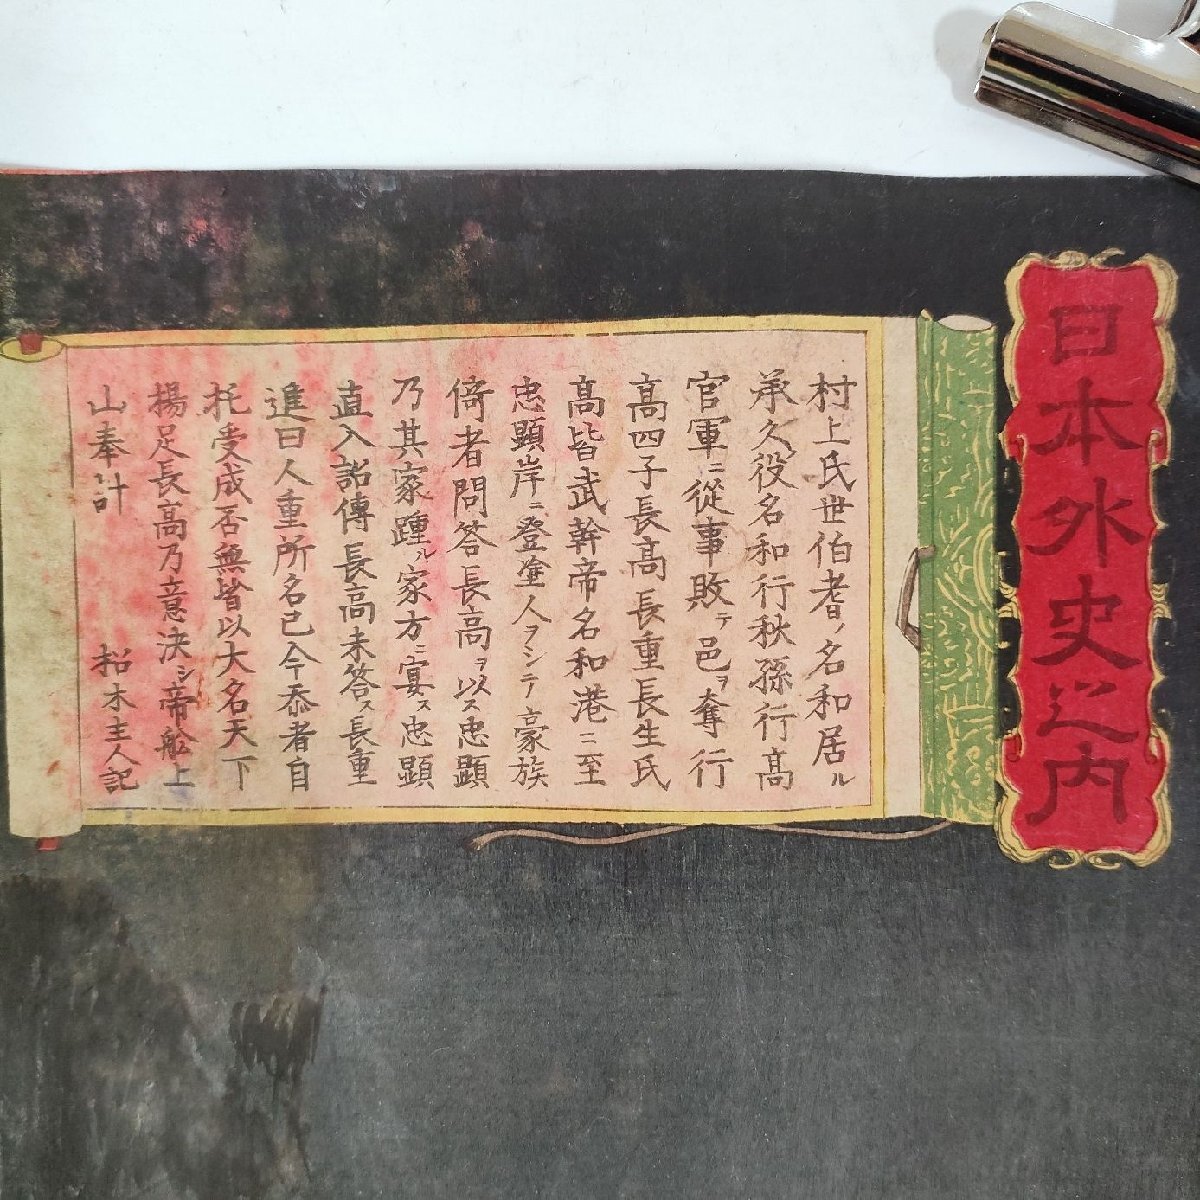 日本外史之内
村上氏世伯耆ノ名和居ル
承久役名和行秋孫行高
官軍ニ從事敗テ邑ヲ奪行
高四子長高長重長生氏
高皆武幹帝名和港ニ至
忠顕岸ニ登塗人ヲシテ豪族
倚者問答長高ヲ以ス忠顕
乃其家踵ル家方ニ宴ス忠顕
直入詔傳長高未答ス長重
進曰人重所名已今忝者自
托受成否無皆以大名天下
揚足長高乃意决シ帝舩上
山奉計
松木主人記